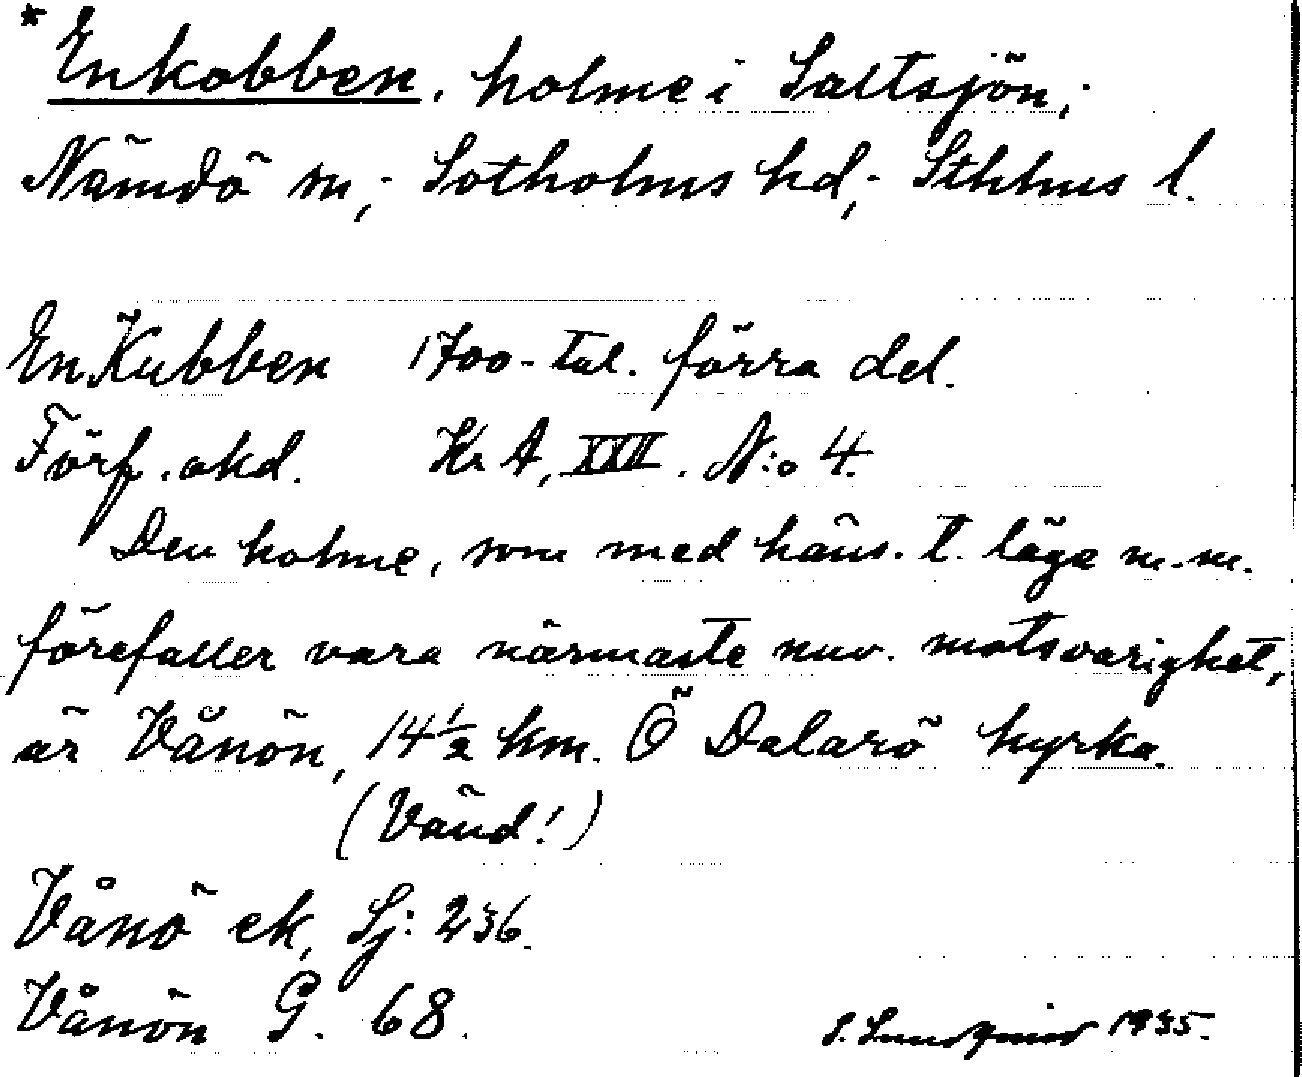 * Enkobben, holme i Saltsjön,
Nämdö sn, Sotholms hd, Sthlms l.
En Kubben 1700-tal. förra del.
Förf. okd. Kr A, XXII. N:o 4.
Den holme, som med häns. t. läge m.m.
förefaller vara närmaste nuv. motsvarighet,
är Vånön, 14 1/2 km. Ö Dalarö kyrka.
(Vänd!)
Vånö ek, Sj: 236.
Vånön G. 68.
S. Lundqvist 1935.